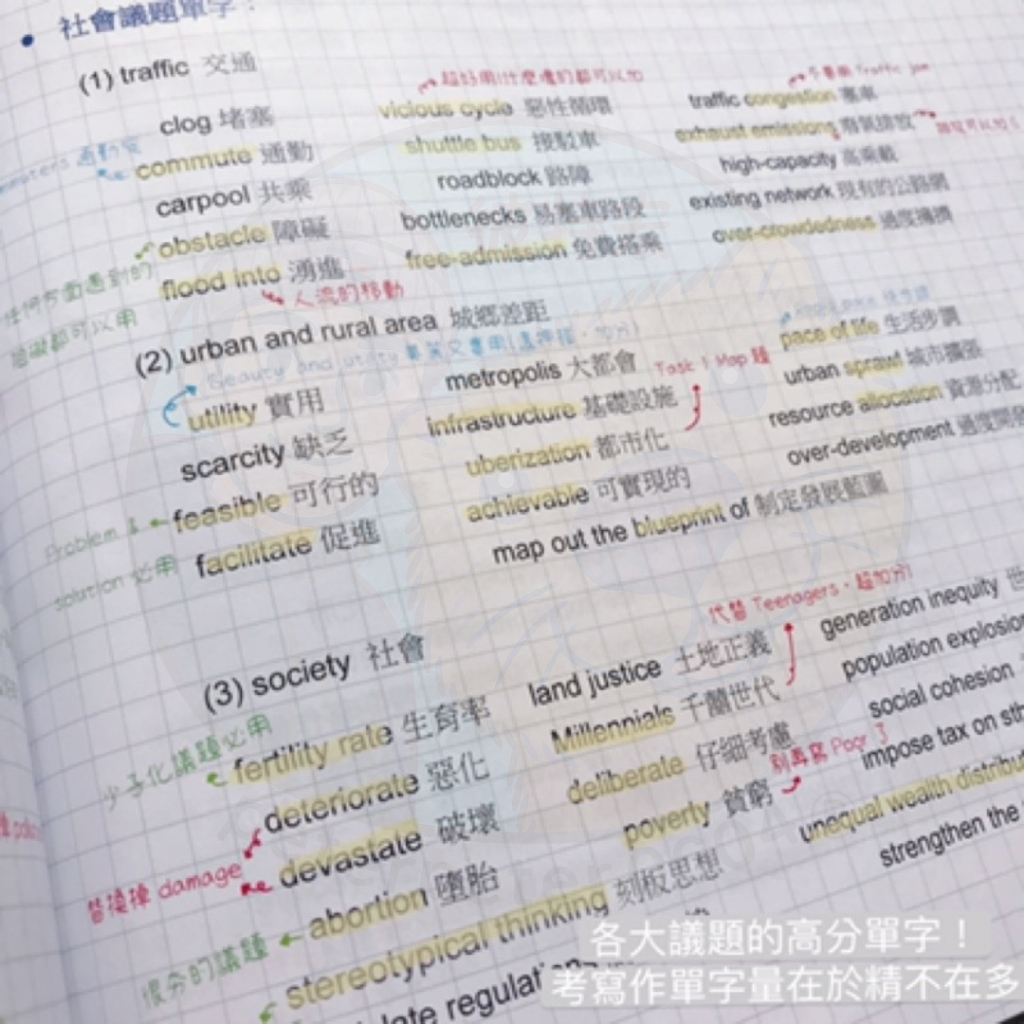 社會議題單字：
(1) traffic 交通
超好用!什麼爛的都可以加
clog 堵塞
vicious cycle 惡性循環
traffic congestion 塞車
commute 通勤
shuttle bus 接駁車
exhaust emissions 廢氣排放
carpool 共乘
roadblock 路障
high-capacity 高乘載
obstacle 障礙
bottlenecks 易塞車路段
existing network 現有的公路網
flood into 湧進
free-admission 免費搭乘
over-crowdedness 過度擁擠
任何方面遇到的
都可以用
人流的移動
(2) urban and rural area 城鄉差距
Beauty and utility
utility 實用
metropolis 大都會
Task 1 Map 題
pace of life 生活步調
scarcity 缺乏
infrastructure 基礎設施
urban sprawl 城市擴張
feasible 可行的
uberization 都市化
resource allocation 資源分配
facilitate 促進
achievable 可實現的
over-development 過度開發
Problem &
solution 必用
map out the blueprint of 制定發展藍圖
(3) society 社會
代替 Teenagers，超加分!
少子化議題必用
fertility rate 生育率
land justice 土地正義
generation inequity 世
deteriorate 惡化
Millennials 千蘭世代
population explosion
devastate 破壞
deliberate 仔細考慮
social cohesion
替換掉 damage
別再寫 Poor 了
abortion 墮胎
poverty 貧窮
impose tax on
stereotypical thinking 刻板思想
unequal wealth
很夯的議題
strengthen the
各大議題的高分單字！
考寫作單字量在於精不在多